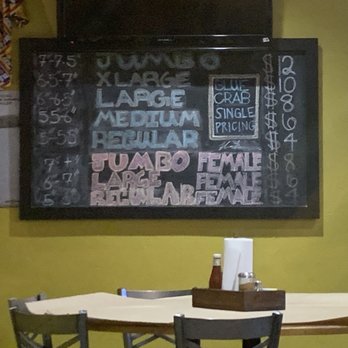 7-7.5" JUMBO $12
6.5-7" XLARGE $10
6-6.5" LARGE $8
5.5-6" MEDIUM $6
5-5.5" REGULAR $4
BLUE
CRAB
SINGLE
PRICING
JUMBO FEMALE
6-7" LARGE FEMALE
REGULAR FEMALE